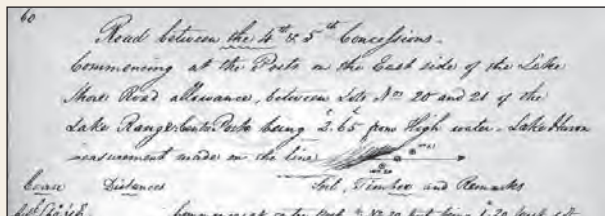 60
Road between the 4th & 5th Concessions.
Commencing at the Posts on the East side of the Lake
Shore Road allowance, between Lots Nos 20 and 21 of the
Lake Range Centre Posts being 2.65 from High water - Lake Huron
measurement made on the line
Course Distances Soil, Timber and Remarks
Commences at